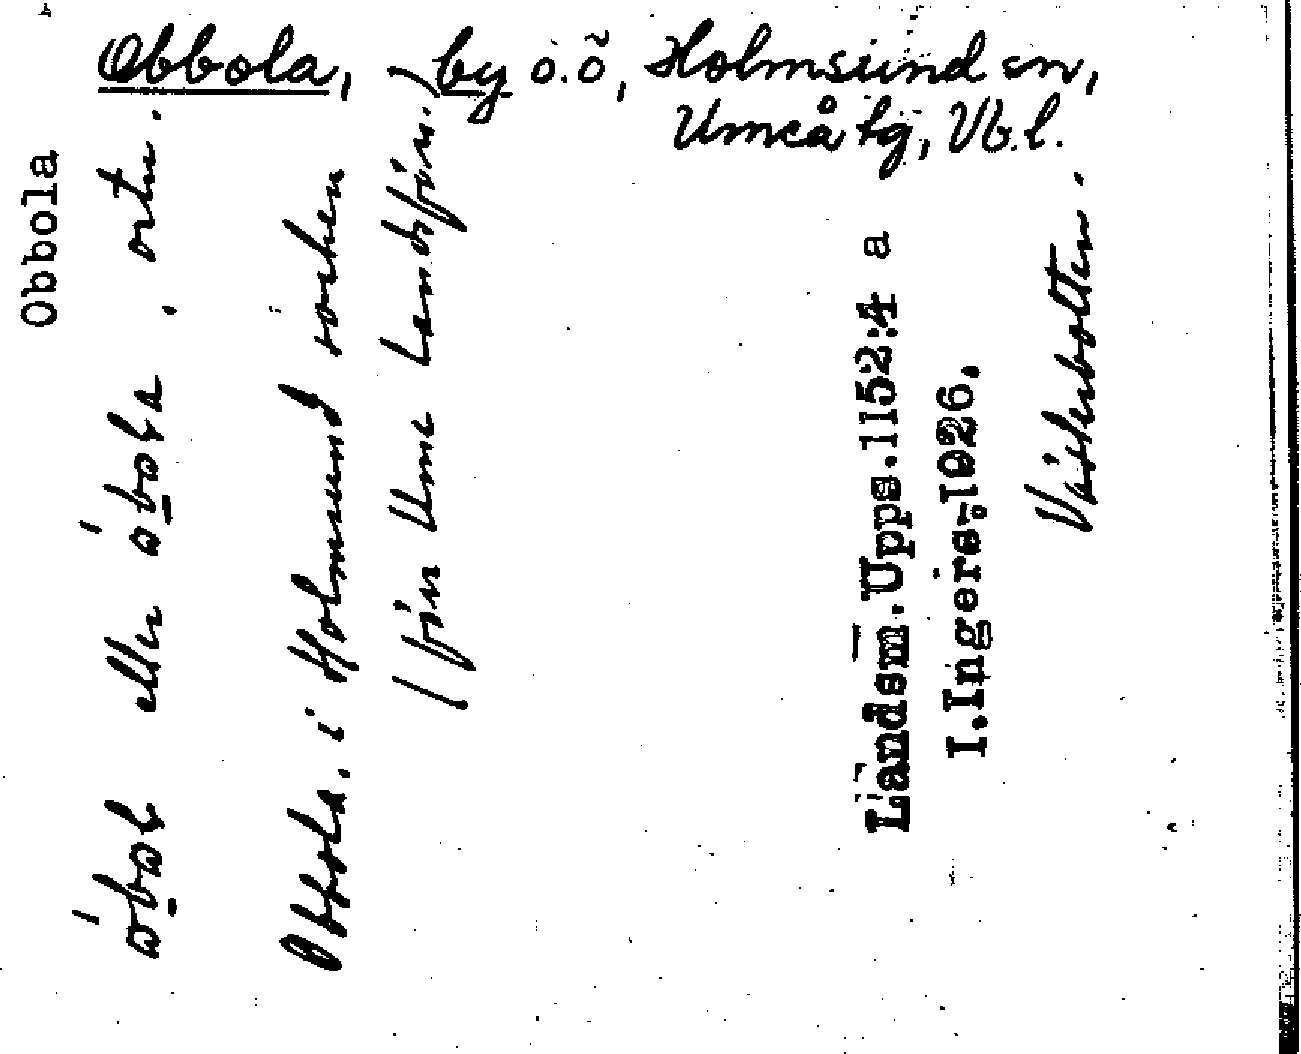 Obbola, by o.ö, Holmsund sn,
Umeå tg, Vb.l.
Obbola
óbol eller óbola, ortn.
Obbola, i Holmsund socken
(förr Ume landsförs.)
Landsm.Upps.1152:4 a
I.Ingers;1926.
Västerbotten.